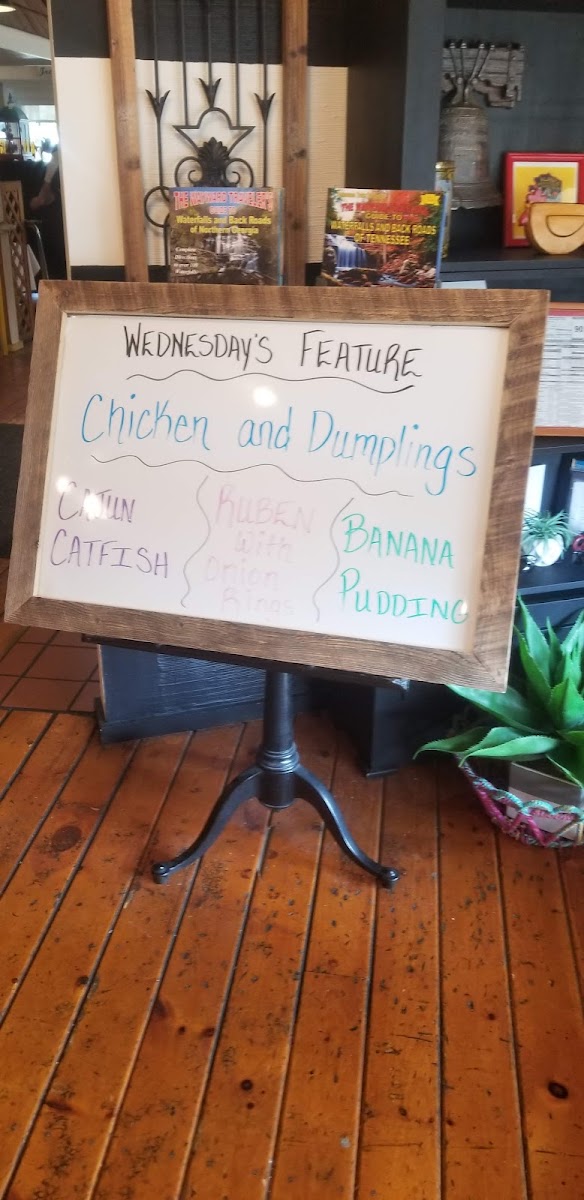 Waterfalls and Back Roads
of Northern Georgia
GUIDE TO
WATERFALLS AND BACK ROADS
OF TENNESSEE
WEDNESDAY'S FEATURE
Chicken and Dumplings
CAJUN
CATFISH
RUBEN
With
Onion
Rings
BANANA
PUDDING